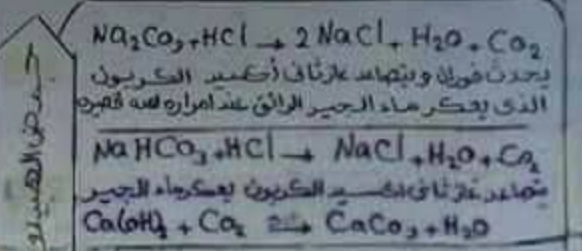 Na₂Co₃ + HCl → 2 NaCl + H₂O + Co₂
يحدث فوران ويتصاعد غاز ثانى أكسيد الكربون
الذى يعكر ماء الجير الرائق عند امراره لمده قصيره
NaHCo₃ + HCl → NaCl + H₂O + Co₂
يتصاعد غاز ثانى اكسيد الكربون يعكر ماء الجير
Ca(oH)₂ + Co₂ ⇌ CaCo₃ + H₂O